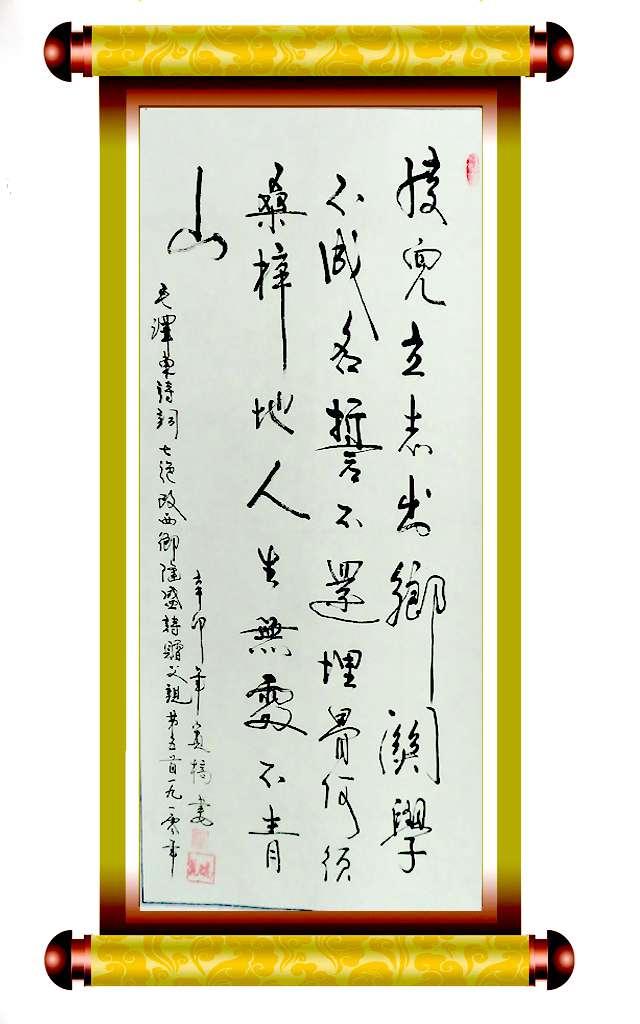 孩兒立志出鄉關學
不成名誓不還埋骨何須
桑梓地人生無處不青
山
辛卯年橋書
毛澤東詩詞七絕改西鄉隆盛詩贈父親五首一九一零年